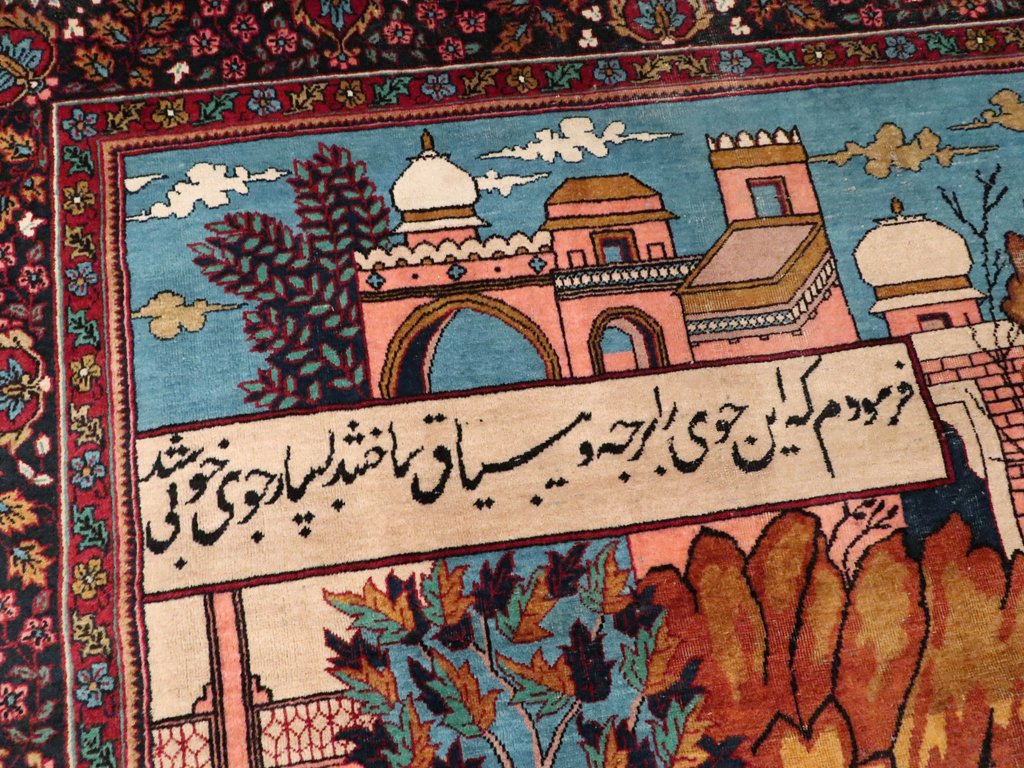 فرمودم که این جوی را برجه و بسیاق بساختند بسیار جوی خوبی شد